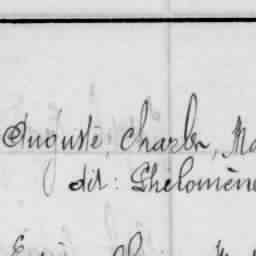 Auguste, Charles, Ma
dit : Philomène